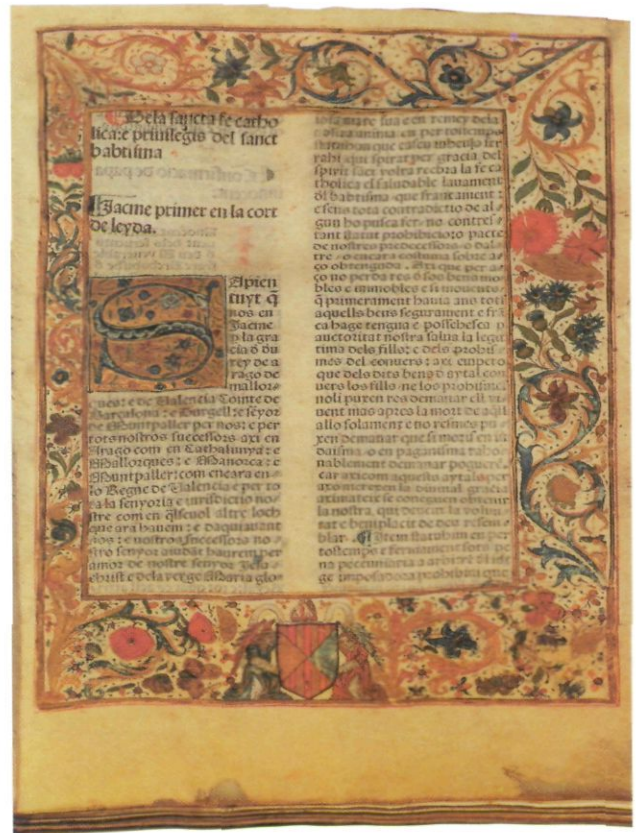 De la sancta fe catho
lica: e priuilegis del sanct
babtisma
Jacme primer en la cort
de leyda.
SApien
tuyt q̃
nos en
Jacme
p la gra
cia d̉ du
rey de a
rago de
mallor⸗
ques: e de Valencia Comte de
Barcelona: e Durgell: e seyor
de Muntpaller per nos: e per
tots nostros successors axi en
Arago com en Cathalunya: e
Mallorques: e Manorca: e
Muntpaller: com encara en
lo Regne de Valencia e per to
ta la senyoria e iurisdictio no⸗
stre com en q̃lseuol altre loch
que ara hauem: e daqui auant
nos: e nostros successors no⸗
stro senyor aiudāt haurem per
amor de nostre senyor Jesu
christ e dela verge Maria glo⸗
statuhim que caseu
rahi qui spirat per gracia del
spirit sāct volra rebra la fe ca
tholica el saludable lauament
dl babtisma que francament:
e sens tota contradictio de al⸗
gun ho pusca fer: no contres⸗
tant statut prohibicio: o pacte
de nostres predecessors: o dal⸗
tre: o encara costuma sobre a⸗
ço obtenguda. Axi que per a⸗
ço no perda res d̉ sos bens mo
bles e immobles e si mouents
q̃ primerament hauia ans tots
aquells bens segurament e frā
ca hage tenga e possehesca p
auctoritat nostra salua la legit
tima dels fills: e dels prohis⸗
mes del conuers: axi
que dels dits bens d̉ aytal con
uers los fills ne los prohismes
noli puxen res demanar ell vi
uent mas apres la mort de aq̃ll
allo solament e no resmes pu⸗
xen demanar que si moris en iu
daisme o en paganisme raho⸗
nablement demanar poguerē
car axi com aquests aytals per
axo merexen la diuinal gracia
axi mateix se conega merexer
la nostra, qui deuem la volun
tat e beniplacit de deu resem⸗
blar. Item statuhim en per
tostemps e fermament sots pe
na pecuniaria a arbitre d̉l iut
ge imposadora prohibim que